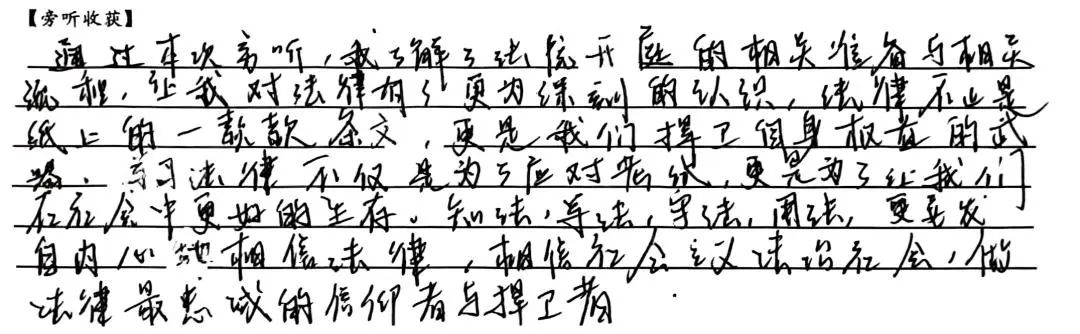 【旁听收获】
通过本次旁听，我了解了法院开庭的相关准备与相关
流程，让我对法律有了更为深刻的认识，法律不止是
纸上的一款款条文，更是我们捍卫自身权益的武
器。学习法律不仅是为了应对考试，更是为了让我们
在社会中更好的生存。知法，学法，守法，用法，更要发
自内心地相信法律，相信社会主义法治社会，做
法律最忠诚的信仰者与捍卫者